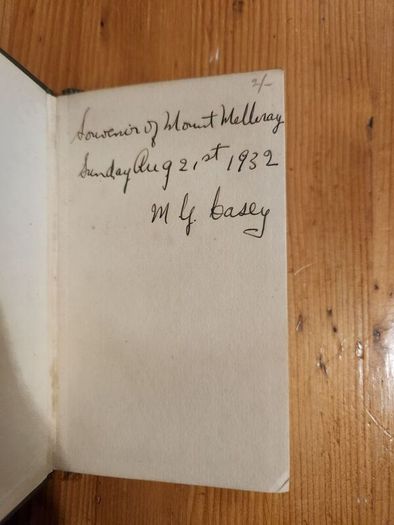 2/-
Souvenir of Mount Melleray
Sunday Aug 21st 1932
M G. Casey